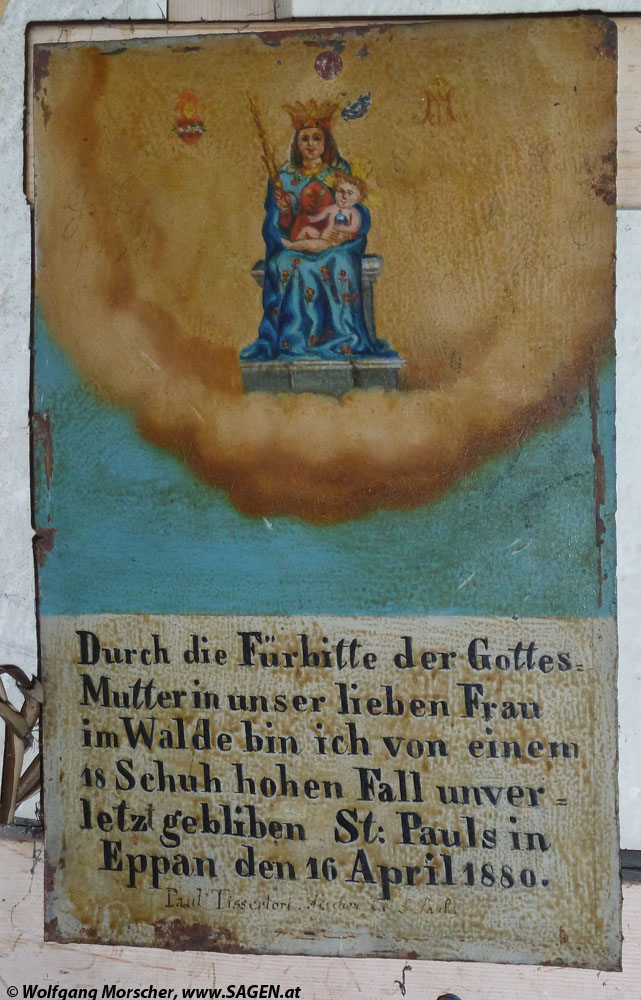 Durch die Fürbitte der Gottes=
Mutter in unser lieben Frau
im Walde bin ich von einem
18 Schuh hohen Fall unver=
letzt gebliben St: Pauls in
Eppan den 16 April 1880.
Paul
© Wolfgang Morscher, www.SAGEN.at